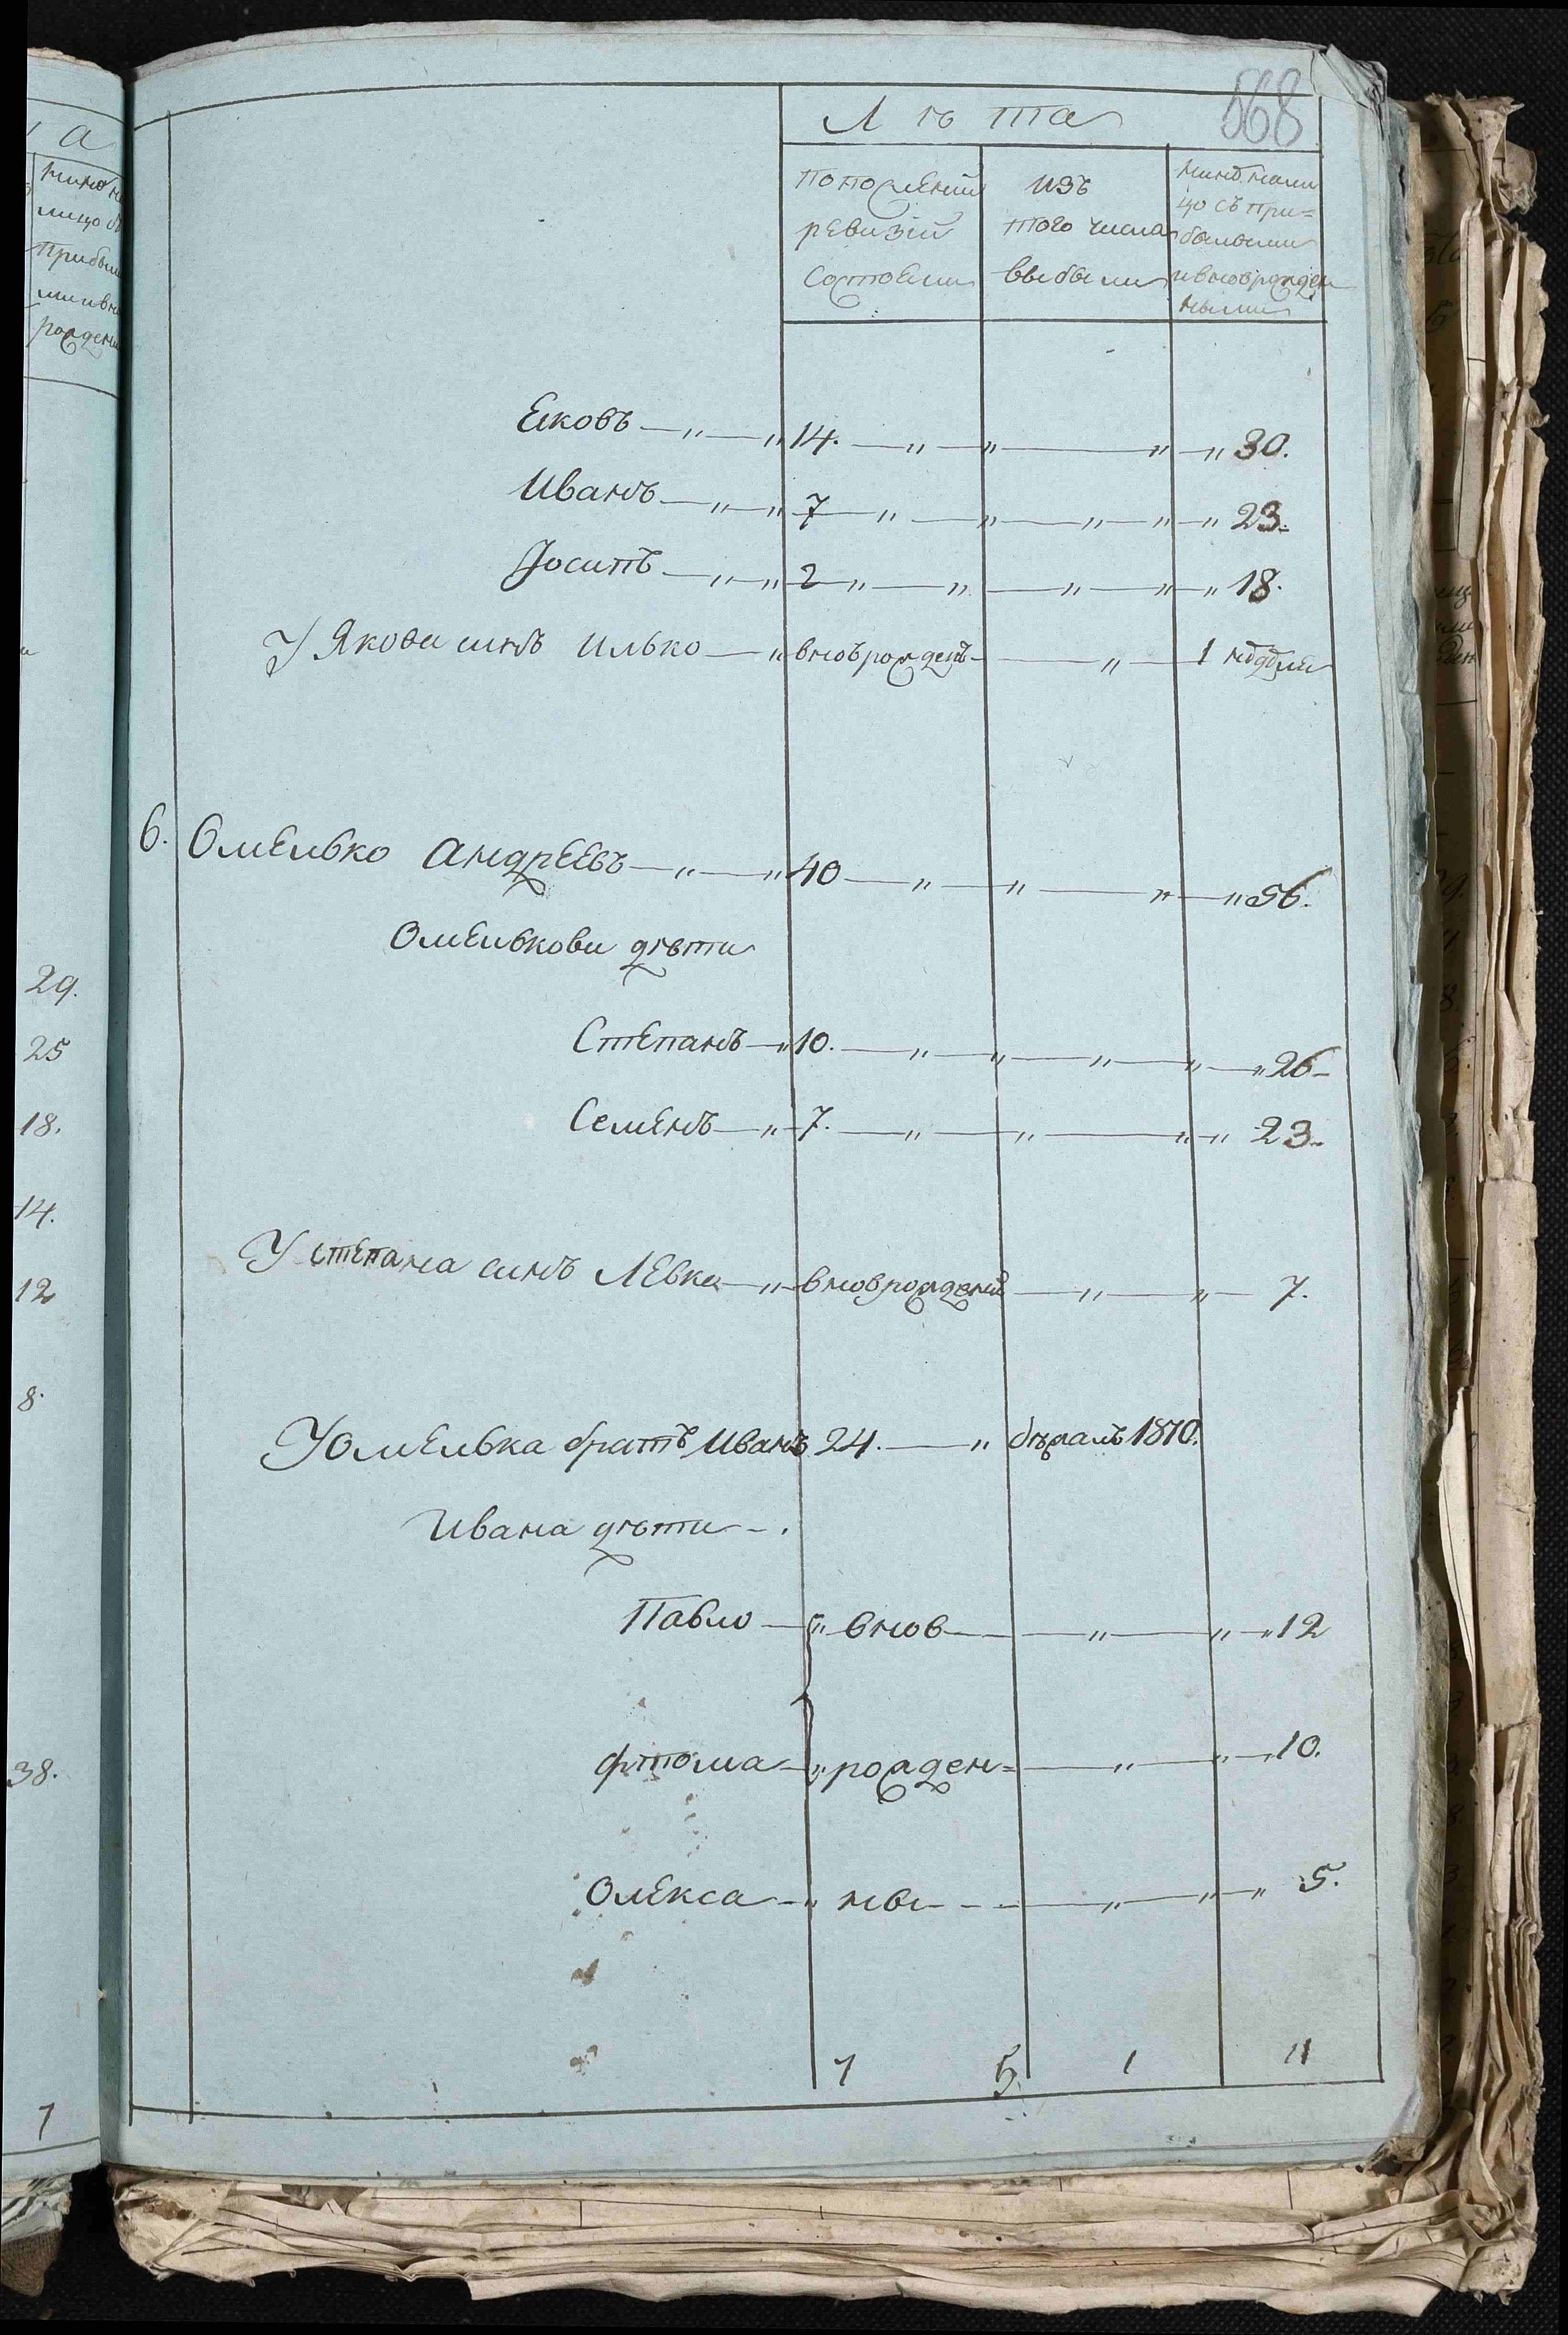 568
Лѣта
по последней ревизіи состояли
изъ того числа выбыли
нинѣ налицо съ прибылыми и вновьрожденными
Еяковъ 14. 30.
Иванъ 7 23.
Іосипъ 2 18.
У Якова синъ Илько вновьрожденъ 1 недѣли
6. Омелько Андреевъ 40 56.
Омелькови дѣти
Степанъ 10. 26
Семенъ 7. 23
У степана синъ Левко вноврожденій 7.
У омелька братъ Иванъ 24. бѣжалъ 1810.
Ивана дѣти
Павло внов 12
Фтома рожден= 10.
Олекса ны 5.
7 5 1 11
29.
25
18.
14.
12
8.
38.
7